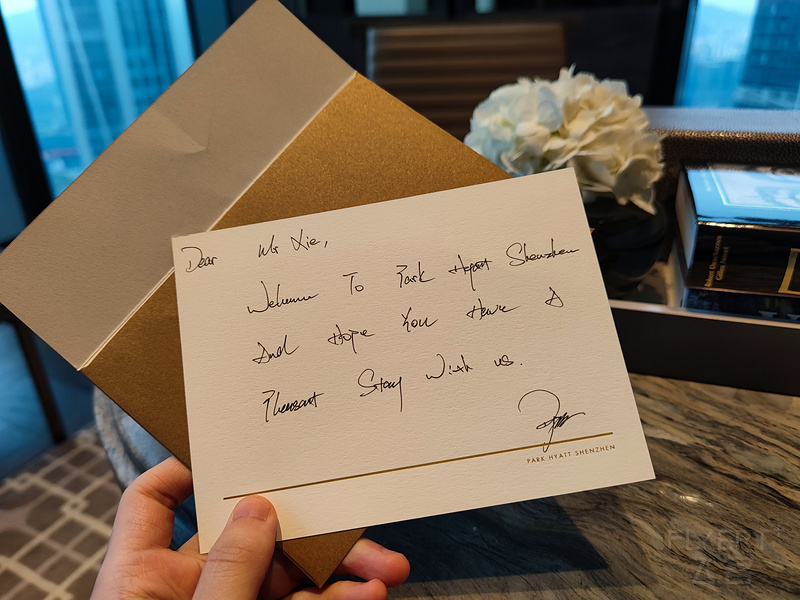 Dear Mr Xie,
Welcome To Park Hyatt Shenzhen
And Hope You Have A
Pleasant Stay With us.
PARK HYATT SHENZHEN
FLYERT